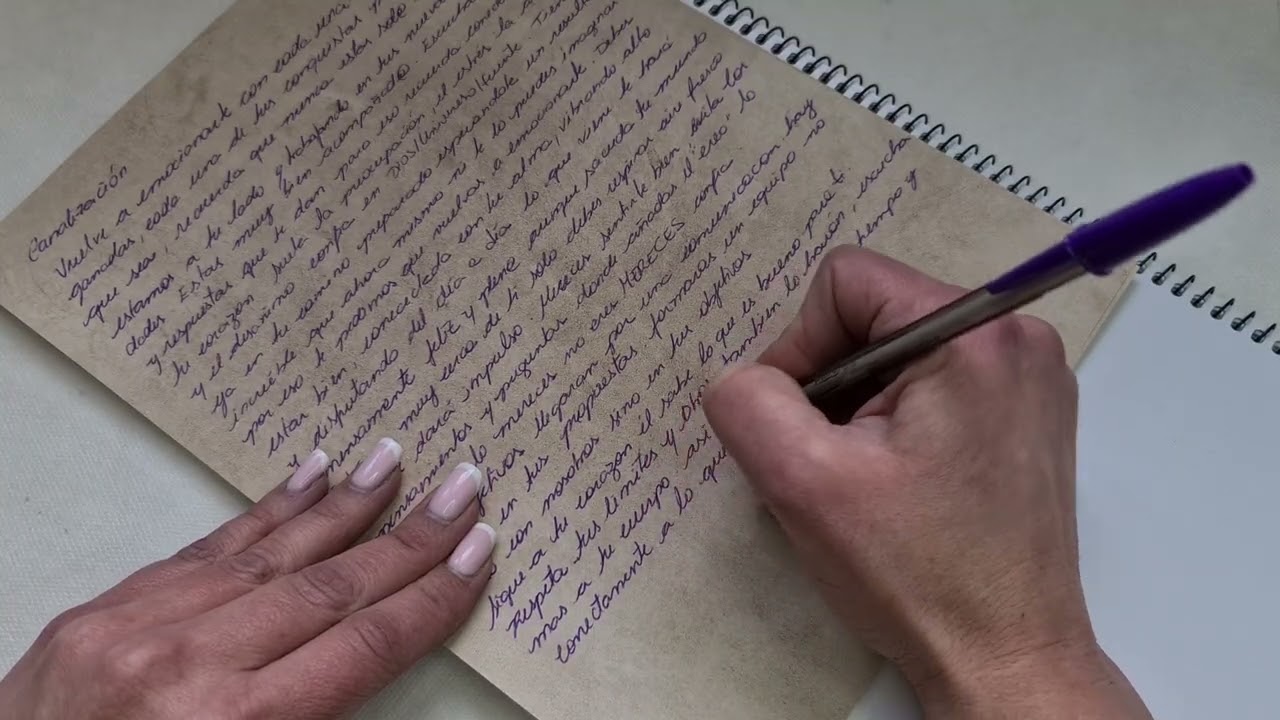 Canalización
Vuelve a emocionarte con cada una
ganadas, cada una de tus conquistas
que sea, recuerda que nunca estas solo
estamos a tu lado y trabajando en tus
dades. Estas muy bien acompañado. Escucha
y respuestas que te dan para eso recuerda
tu corazón suelta la preocupación, el estrés la
y el desánimo confia en Dios/Universo/Fuente.
ya en tu camino preparado esperandote un
increible que ahora mismo ni te lo puedes imaginar
por eso te pedimos que vuelvas a emocionarte. Debes
estar bien, conectada con tu alma, vibrando alto
y disfrutando del día a día lo que viene te hará
mensamente feliz y plena aunque sacuda tu mundo
muy cerca de ti solo debes respirar aire fresco
dará impulso Mereces sentirte bien evita los
pensamientos y preguntas donde añadas el "creo" lo
lo mereces no crees MERECES confia
llegaran por una comunicacion hay
en tus propuestas formamos un equipo no
con nosotros sino en tus objetivos
sigue a tu corazon el sabe lo que es bueno para t
Respeta tus limites y
mas a tu cuerpo así tambien lo harán, escucha
conectamente a lo que tiempo y